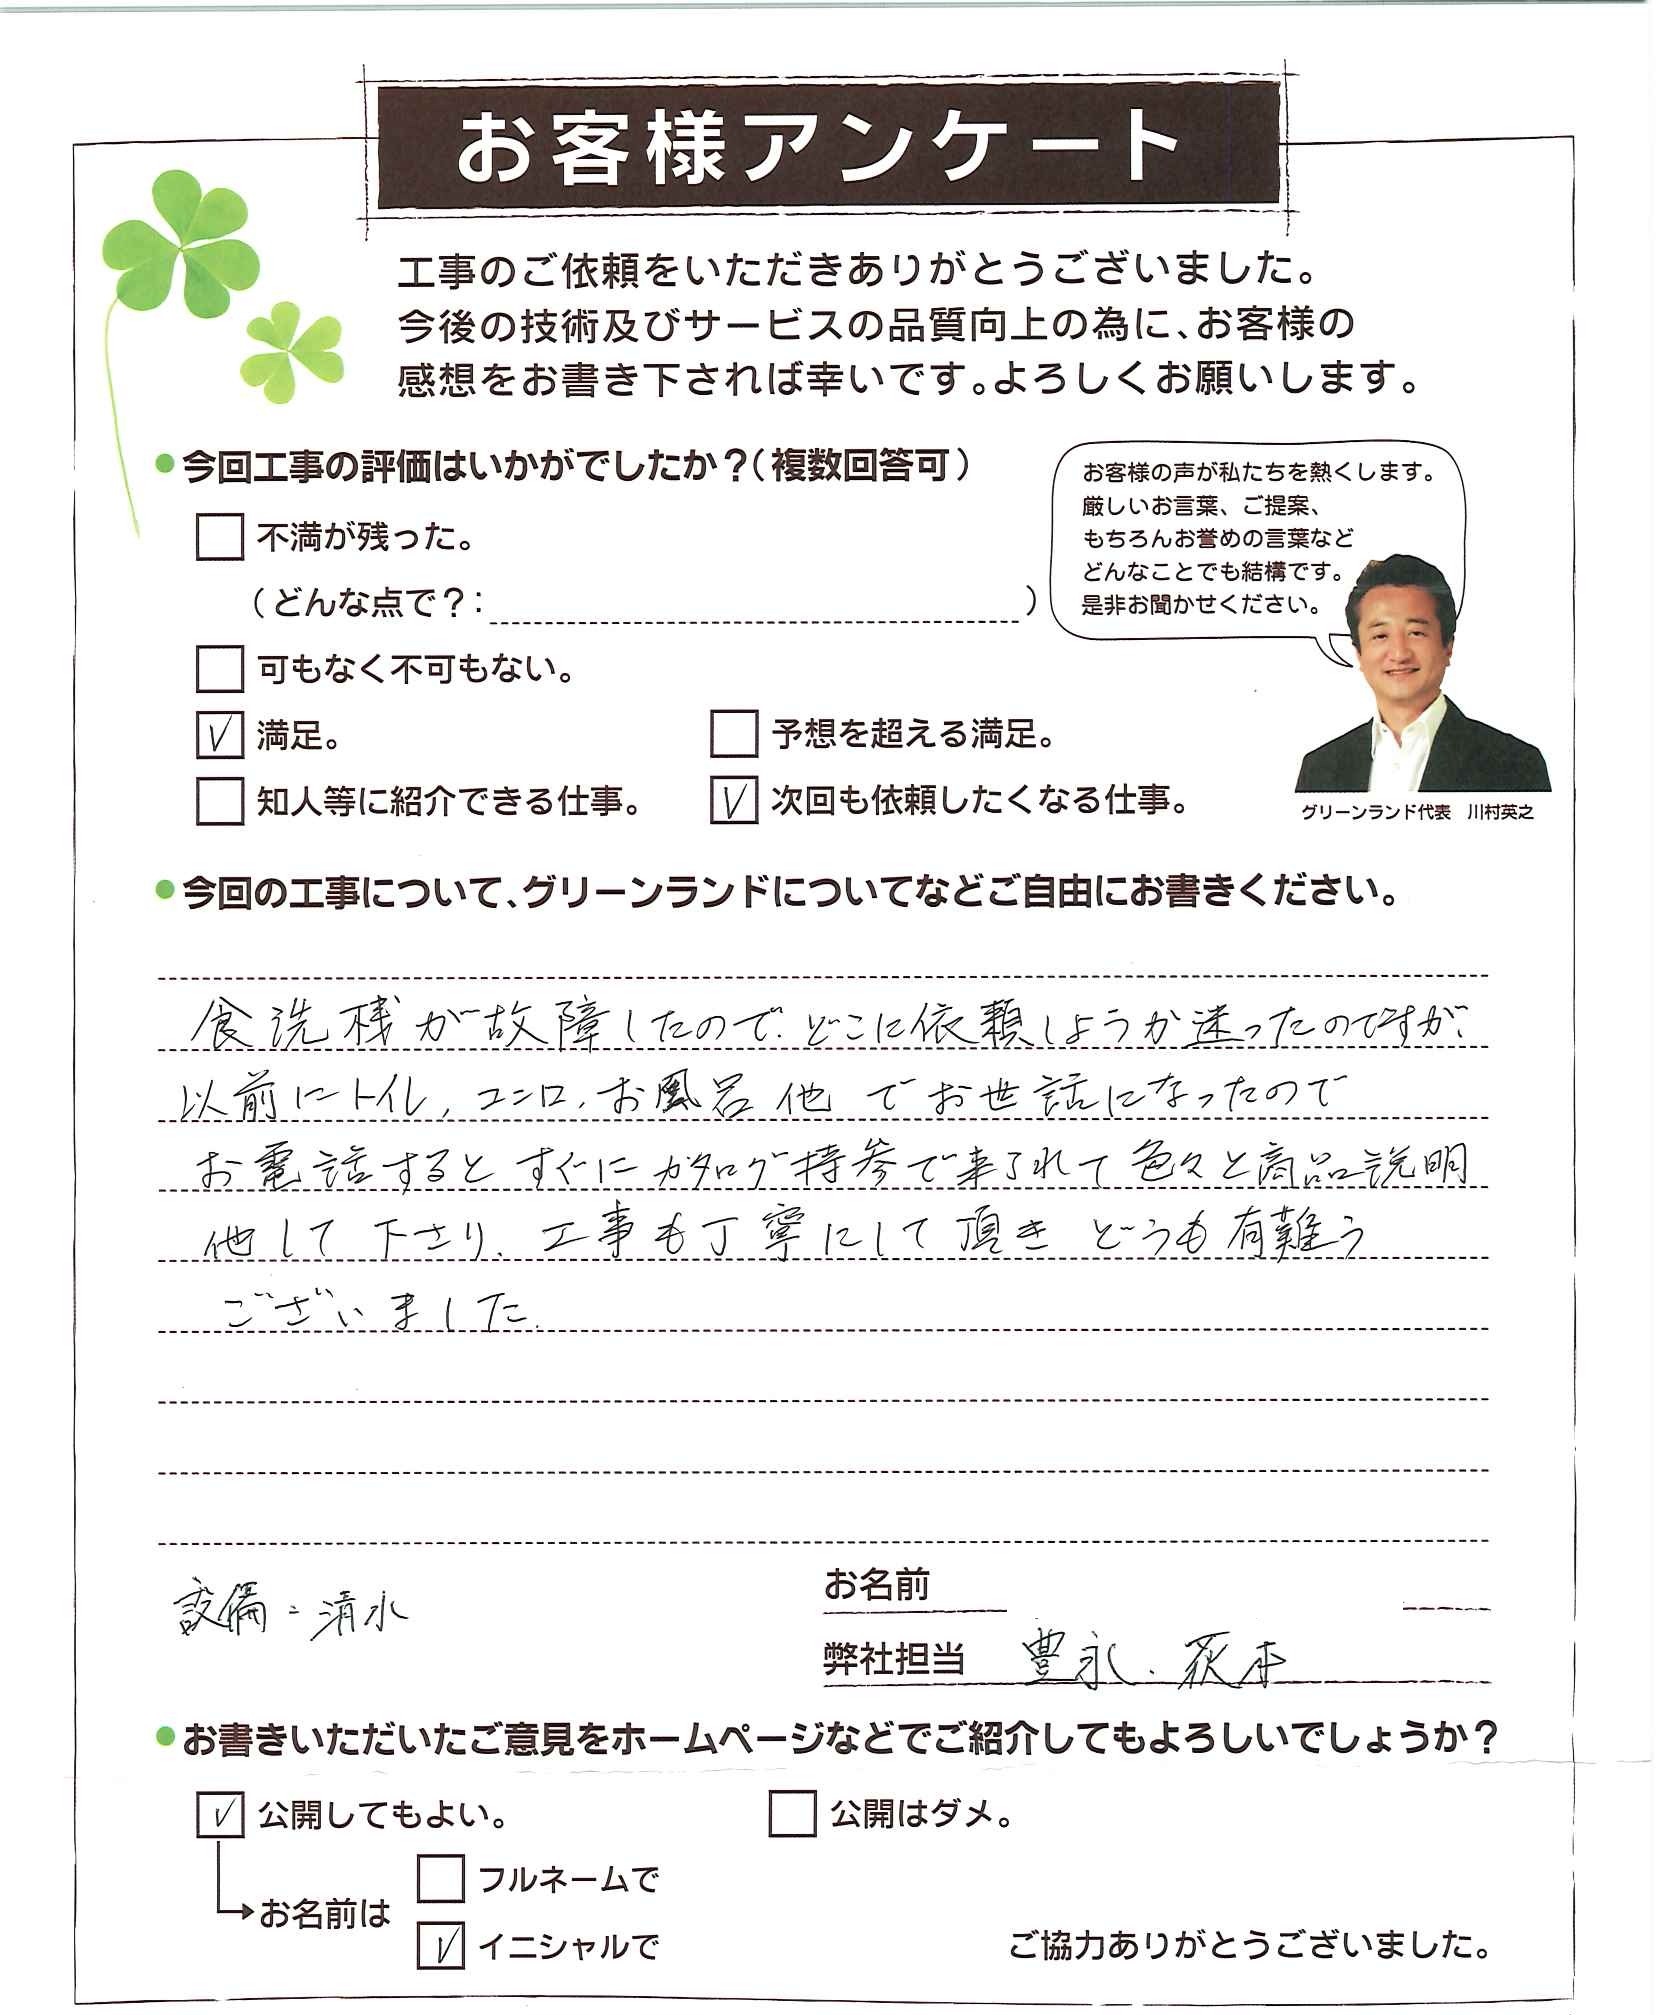 お客様アンケート
工事のご依頼をいただきありがとうございました。
今後の技術及びサービスの品質向上の為に、お客様の
感想をお書き下されば幸いです。よろしくお願いします。
●今回工事の評価はいかがでしたか?(複数回答可)
不満が残った。
(どんな点で?: )
可もなく不可もない。
満足。
予想を超える満足。
知人等に紹介できる仕事。
次回も依頼したくなる仕事。
お客様の声が私たちを熱くします。
厳しいお言葉、ご提案、
もちろんお誉めの言葉など
どんなことでも結構です。
是非お聞かせください。
グリーンランド代表 川村英之
●今回の工事について、グリーンランドについてなどご自由にお書きください。
食洗桟が故障したので、どこに依頼しようか迷ったのですが、
以前にトイレ、コンロ、お風呂他でお世話になったので
お電話するとすぐにカタログ持参で来られて色々と商品説明
他して下さり、工事も丁寧にして頂きどうも有難う
ございました。
設備=清水
お名前
弊社担当 豊永、荻本
●お書きいただいたご意見をホームページなどでご紹介してもよろしいでしょうか?
公開してもよい。
公開はダメ。
お名前は
フルネームで
イニシャルで
ご協力ありがとうございました。